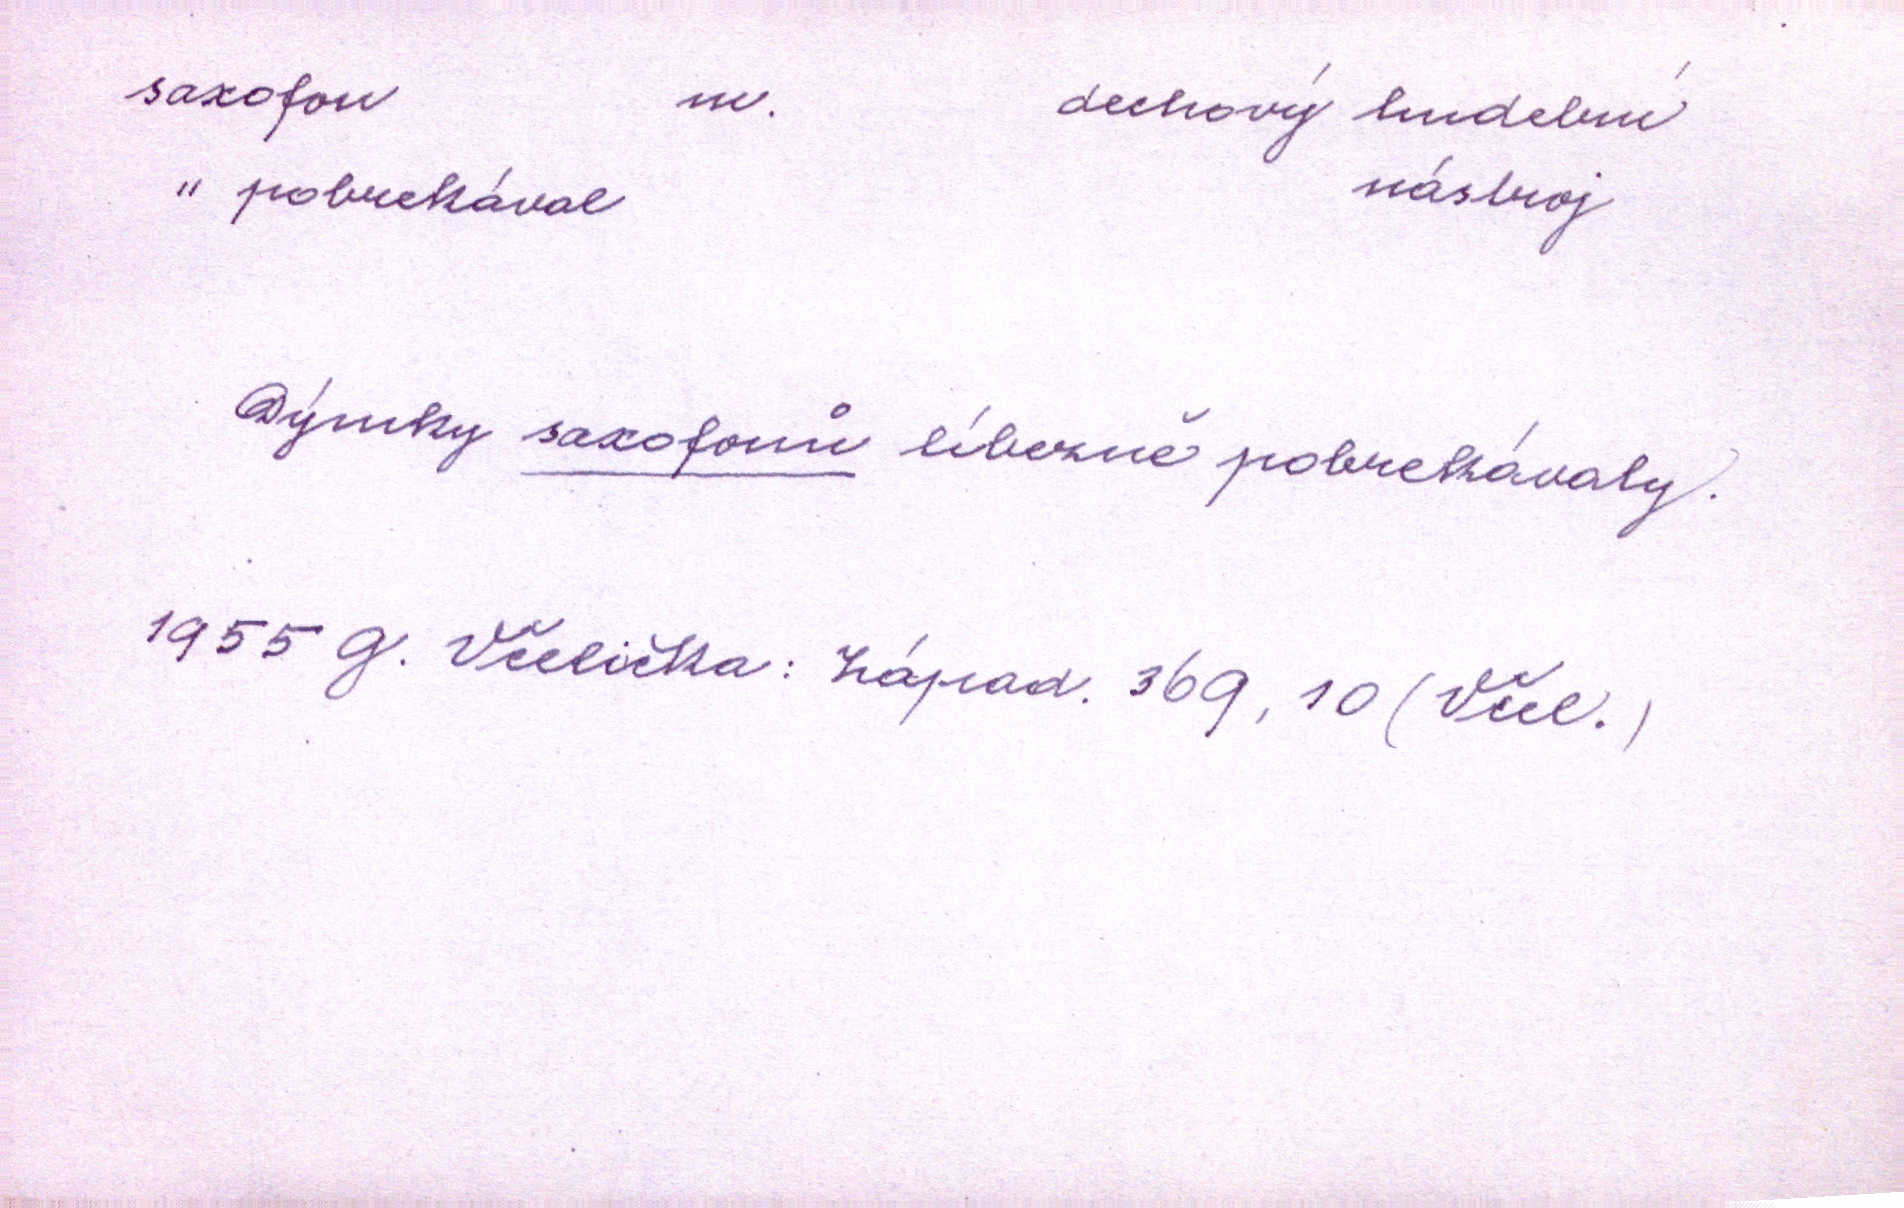 saxofon m. dechový hudební
" pobrekával nástroj
Dýmky saxofonů líbezně pobrekávaly.
1955 G. Včelička: Západ. 369, 10 (Včel.)